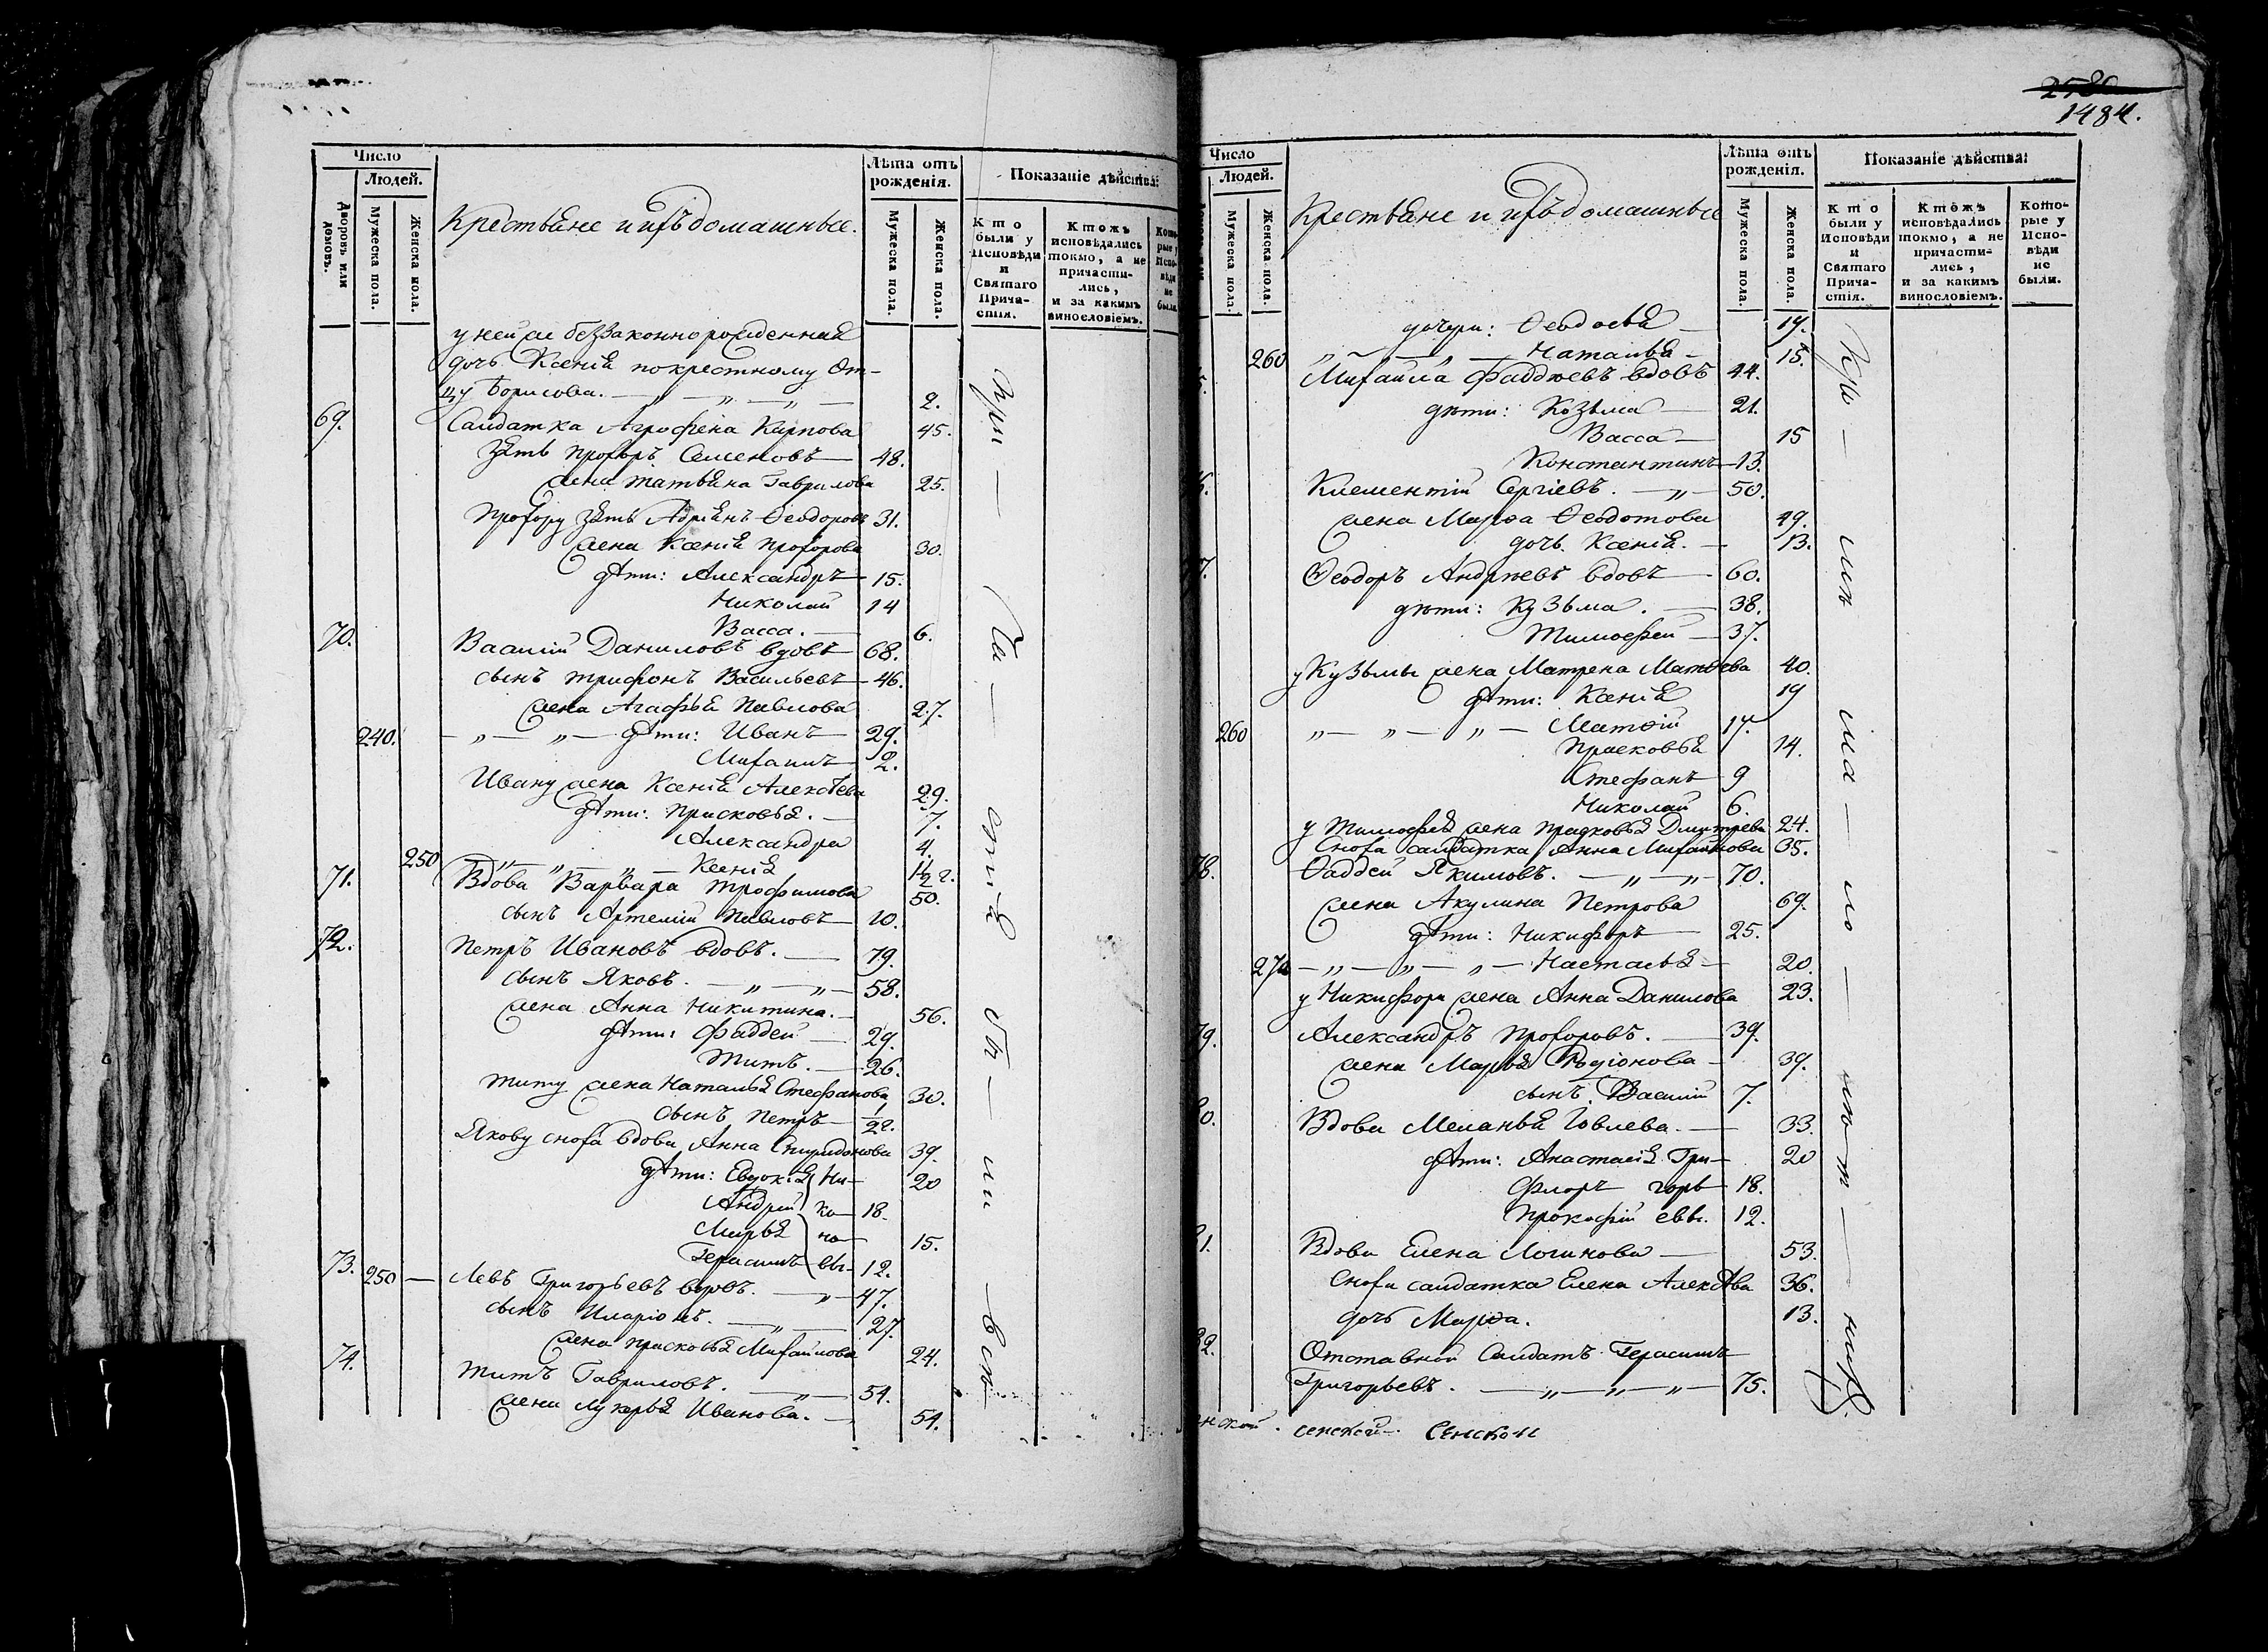 Число
Людей.
Дворовъ или домовъ.
Мужеска пола.
Женска пола.
Крестьяне и ихъ домашные.
Лѣта отъ рожденія.
Мужеска пола.
Женска пола.
Показаніе дѣйства:
Кто были у Исповѣди и Святаго Прича-стія.
Ктожъ исповѣдались токмо, а не причасти-лись, и за какимъ винословіемъ.
у нейже беззаконнорожденная
дочь Ксенія по крестному От-
цу Борисова. 2.
69. Салдатка Агрофена Карпова 45.
Зять Прохоръ Семеновъ 48.
жена Татьяна Гаврилова 25.
Прохору зять Адріянъ Ѳеодоровъ 31.
жена Ксенія Прохорова 30.
дѣти: Александръ 15.
Николай 14
Васса. 6.
70. Василій Даниловъ вдовъ 68.
сынъ Трифонъ Васильевъ 46.
жена Агафья Павлова 27.
240. дѣти: Иванъ 29.
Михаилъ 2.
Ивану жена Ксенія Алексѣева 29.
дѣти: Присковья. 7.
Александра 4.
250 Ксенія 1/2 г.
71. Вдова Варвара Трофимова 50.
сынъ Артемій Павловъ 10.
72. Петръ Ивановъ вдовъ. 79.
сынъ Яковъ. 58.
жена Анна Никитина. 56.
дѣти: Фаддей 29.
Титъ. 26.
Титу жена Наталья Стефанова 30.
сынъ Петръ 1/2 г.
Якову сноха вдова Анна Спиридонова 39.
дѣти: Евдокія Ни- 20
Андрей ко- 18.
Марья но- 15.
Герасимъ вы- 12.
73. 250 Левъ Григорьевъ вдовъ. 47.
сынъ Иларіонъ. 27.
жена Присковья Михайлова 24.
74. Титъ Гавриловъ. 54.
жена Лукерья Иванова. 54.
При — ча — стія бы — ли — всѣ
2580
1484.
Число
Людей.
Мужеска пола.
Женска пола.
Крестьяне и ихъ домашные
Лѣта отъ рожденія.
Мужеска пола.
Женска пола.
Показаніе дѣйства:
Кто были у Исповѣди и Святаго Прича-стія.
Ктожъ исповѣдались токмо, а не причасти-лись, и за какимъ винословіемъ.
Кото-рые у Испо-вѣди не были.
дочери: Ѳеодосья 17.
260 Наталья 15.
Михайла Фаддѣевъ вдовъ 44.
дѣти: Козьма 21.
Васса 15
Константинъ 13.
Климентій Сергіевъ. 50.
жена Марѳа Ѳеодотова 49.
дочь Ксенія. 13.
7. Ѳеодоръ Андрѣевъ вдовъ 60.
дѣти: Кузьма. 38.
Тимофей 37.
у Кузьмы жена Матрена Матѳѣева 40.
дѣти: Ксенія 19
260 Матѳій 17.
Присковья 14.
Стефанъ 9
Николай 6.
у Тимофея жена Прасковья Дмитрева 24.
Сноха салдатка Анна Михайлова 35.
78. Ѳаддей Якимовъ. 70.
жена Акулина Петрова 69.
дѣти: Никифоръ 25.
270 Настасья 20.
у Никифора жена Анна Данилова 23.
79. Александръ Прохоровъ. 39.
жена Марья Родіонова 39.
сынъ Василій 7.
80. Вдова Меланья Іовлева. 33.
дѣти: Анастасія Гри- 20
Флоръ горь 18.
Прокофій евы. 12.
81. Вдова Елена Логинова 53.
Сноха салдатка Елена Алексѣва 36.
дочь Марѳа. 13.
82. Отставной Салдатъ Герасимъ
Григорьевъ. 75.
нской сенской. Сенской